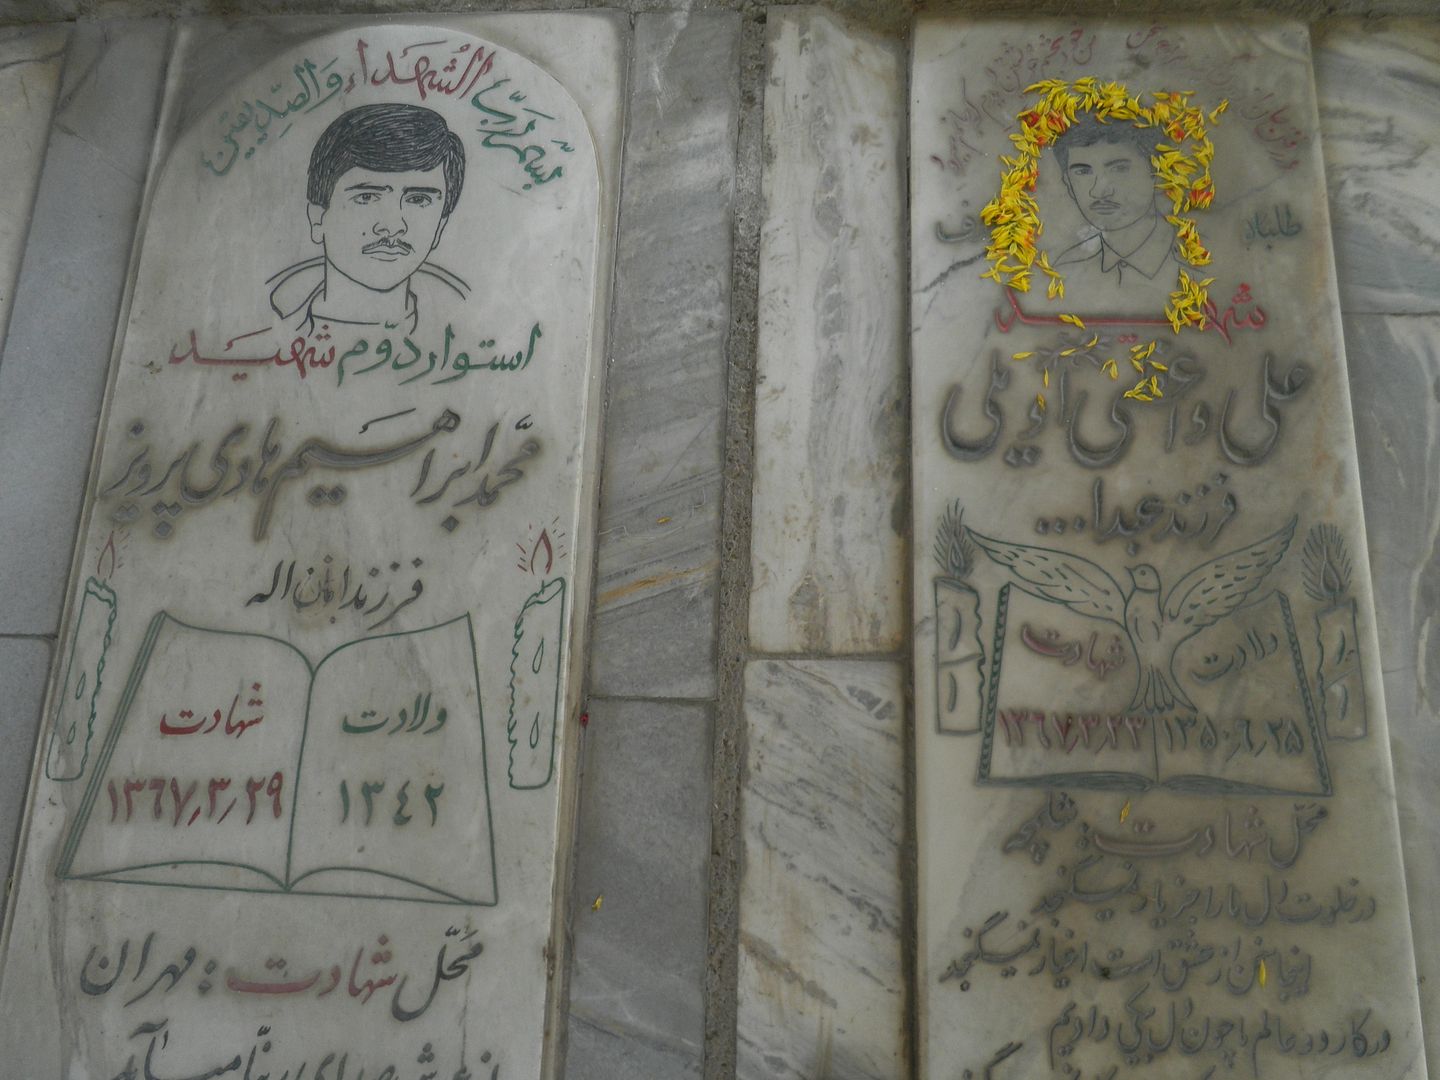 بسم رب الشهداء والصدیقین
استوار دوم شهید
محمد ابراهیم هادی پرویز
فرزند امان اله
ولادت
۱۳۴۲
شهادت
۱۳۶۷٫۳٫۲۹
محل شهادت : مهران
طلبه
شهید
علی واعظی اویلی
فرزند عبدا...
ولادت
۱۳۵۰٫۶٫۲۵
شهادت
۱۳۶۷٫۳٫۲۳
محل شهادت : شلمچه
در خلوت دل ما را جز یار نمیگنجد
اینجا سخن از عشق است اغیار نمیگنجد
در کار دو عالم ما چون دل بیکی دادیم